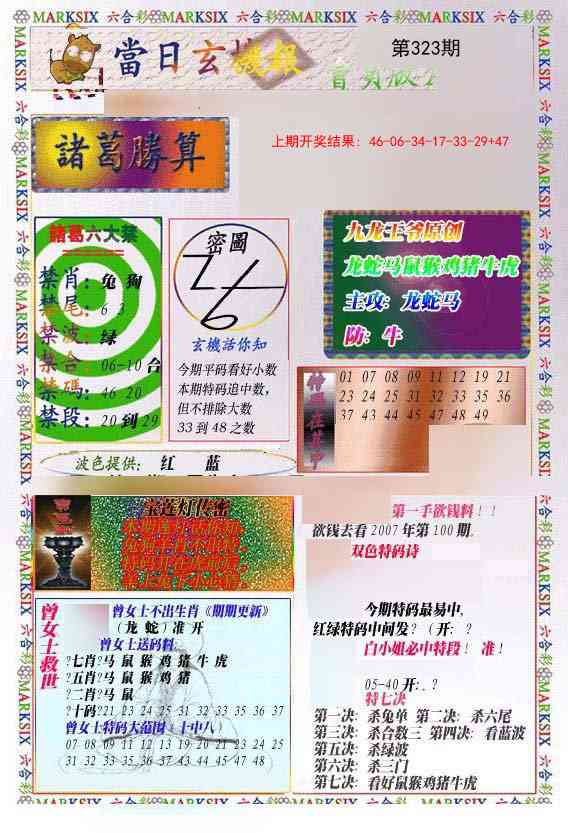 MARKSIX 六合彩 MARKSIX 六合彩 MARKSIX 六合彩 MARKSIX 六合彩 MARKSIX 六合彩
當日玄機報
第323期
諸葛勝算
上期开奖结果: 46-06-34-17-33-29+47
諸葛六大禁
禁肖: 兔 狗
禁尾: 6 3
禁波: 绿
禁合: 06-10 合
禁碼: 46 20
禁段: 20 到 29
密圖
玄機話你知
今期平码看好小数
本期特码追中数,
但不排除大数
33 到 48 之数
九龙王爷原创
龙蛇马鼠猴鸡猪牛虎
主攻: 龙蛇马
防: 牛
特碼在其中
01 07 08 09 11 12 19 21
23 24 25 31 32 33 35 36
37 43 44 45 47 48 49
波色提供: 红 蓝
宝莲灯传密
曾女士救世
曾女士不出生肖《期期更新》
(龙 蛇) 准 开
曾女士送码料:
?七肖?马 鼠 猴 鸡 猪 牛 虎
?五肖?马 鼠 猴 鸡 猪
?二肖?马 鼠
?十码?21 23 24 25 31 32 33 35 36 37
曾女士特码大范围（十中八）
07 08 09 11 12 13 19 20 21 23 24 25
31 32 33 35 36 37 43 44 45 47 48
第一手欲钱料！！
欲钱去看 2007 年第 100 期。
双色特码诗
今期特码最易中,
红绿特码中间发? (开: ?
白小姐必中特段！ 准!
05-40 开: ?
特七决
第一决: 杀兔单 第二决: 杀六尾
第三决: 杀合数三 第四决: 看蓝波
第五决: 杀绿波
第六决: 杀三门
第七决: 看好鼠猴鸡猪牛虎
MARKSIX 六合彩 MARKSIX 六合彩 MARKSIX 六合彩 MARKSIX 六合彩 MARKSIX 六合彩